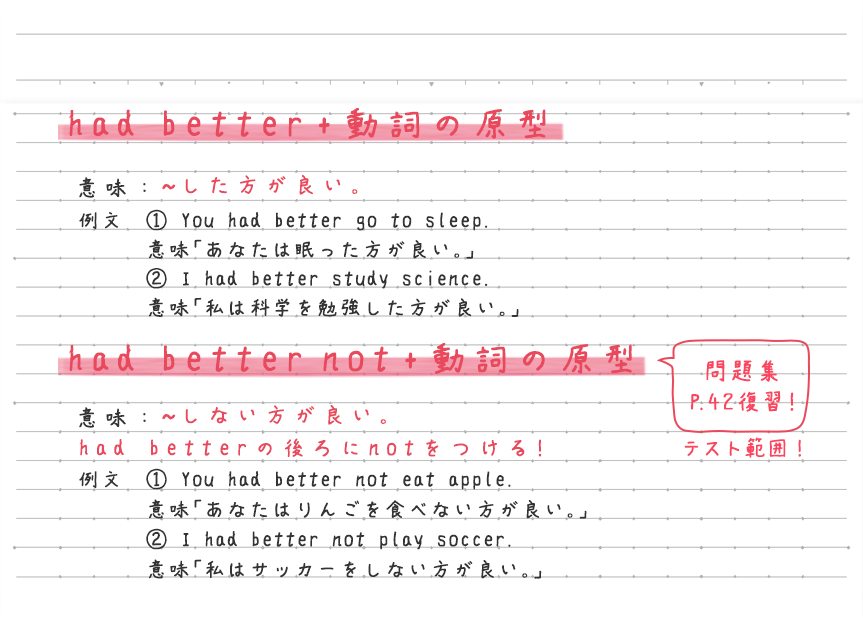 had better+動詞の原型
意味：~した方が良い。
例文 ① You had better go to sleep.
意味「あなたは眠った方が良い。」
② I had better study science.
意味「私は科学を勉強した方が良い。」
had better not+動詞の原型
問題集
P.42復習!
意味：~しない方が良い。
had betterの後ろにnotをつける!
テスト範囲!
例文 ① You had better not eat apple.
意味「あなたはりんごを食べない方が良い。」
② I had better not play soccer.
意味「私はサッカーをしない方が良い。」